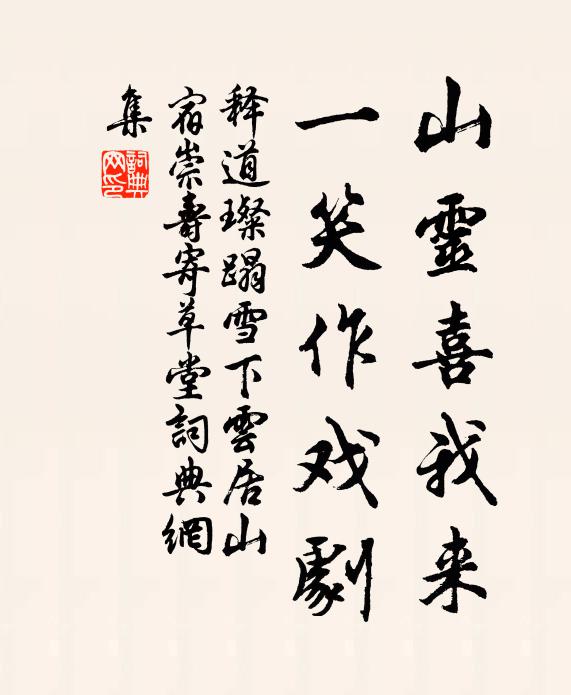 山靈喜我来
一笑作戏劇
释道璨蹋雪下雲居山
宿崇壽寄草堂詞典網
集
詞典网印